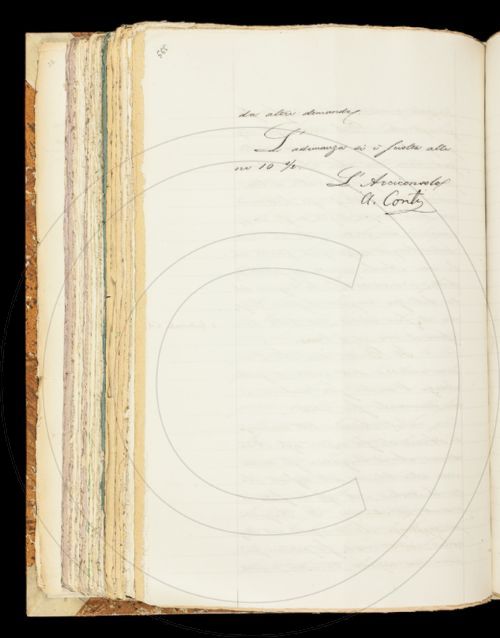 da altre domande
L'adunanza si è sciolta alle
ore 10 ½.
L'Arciconsolo
A. Conti